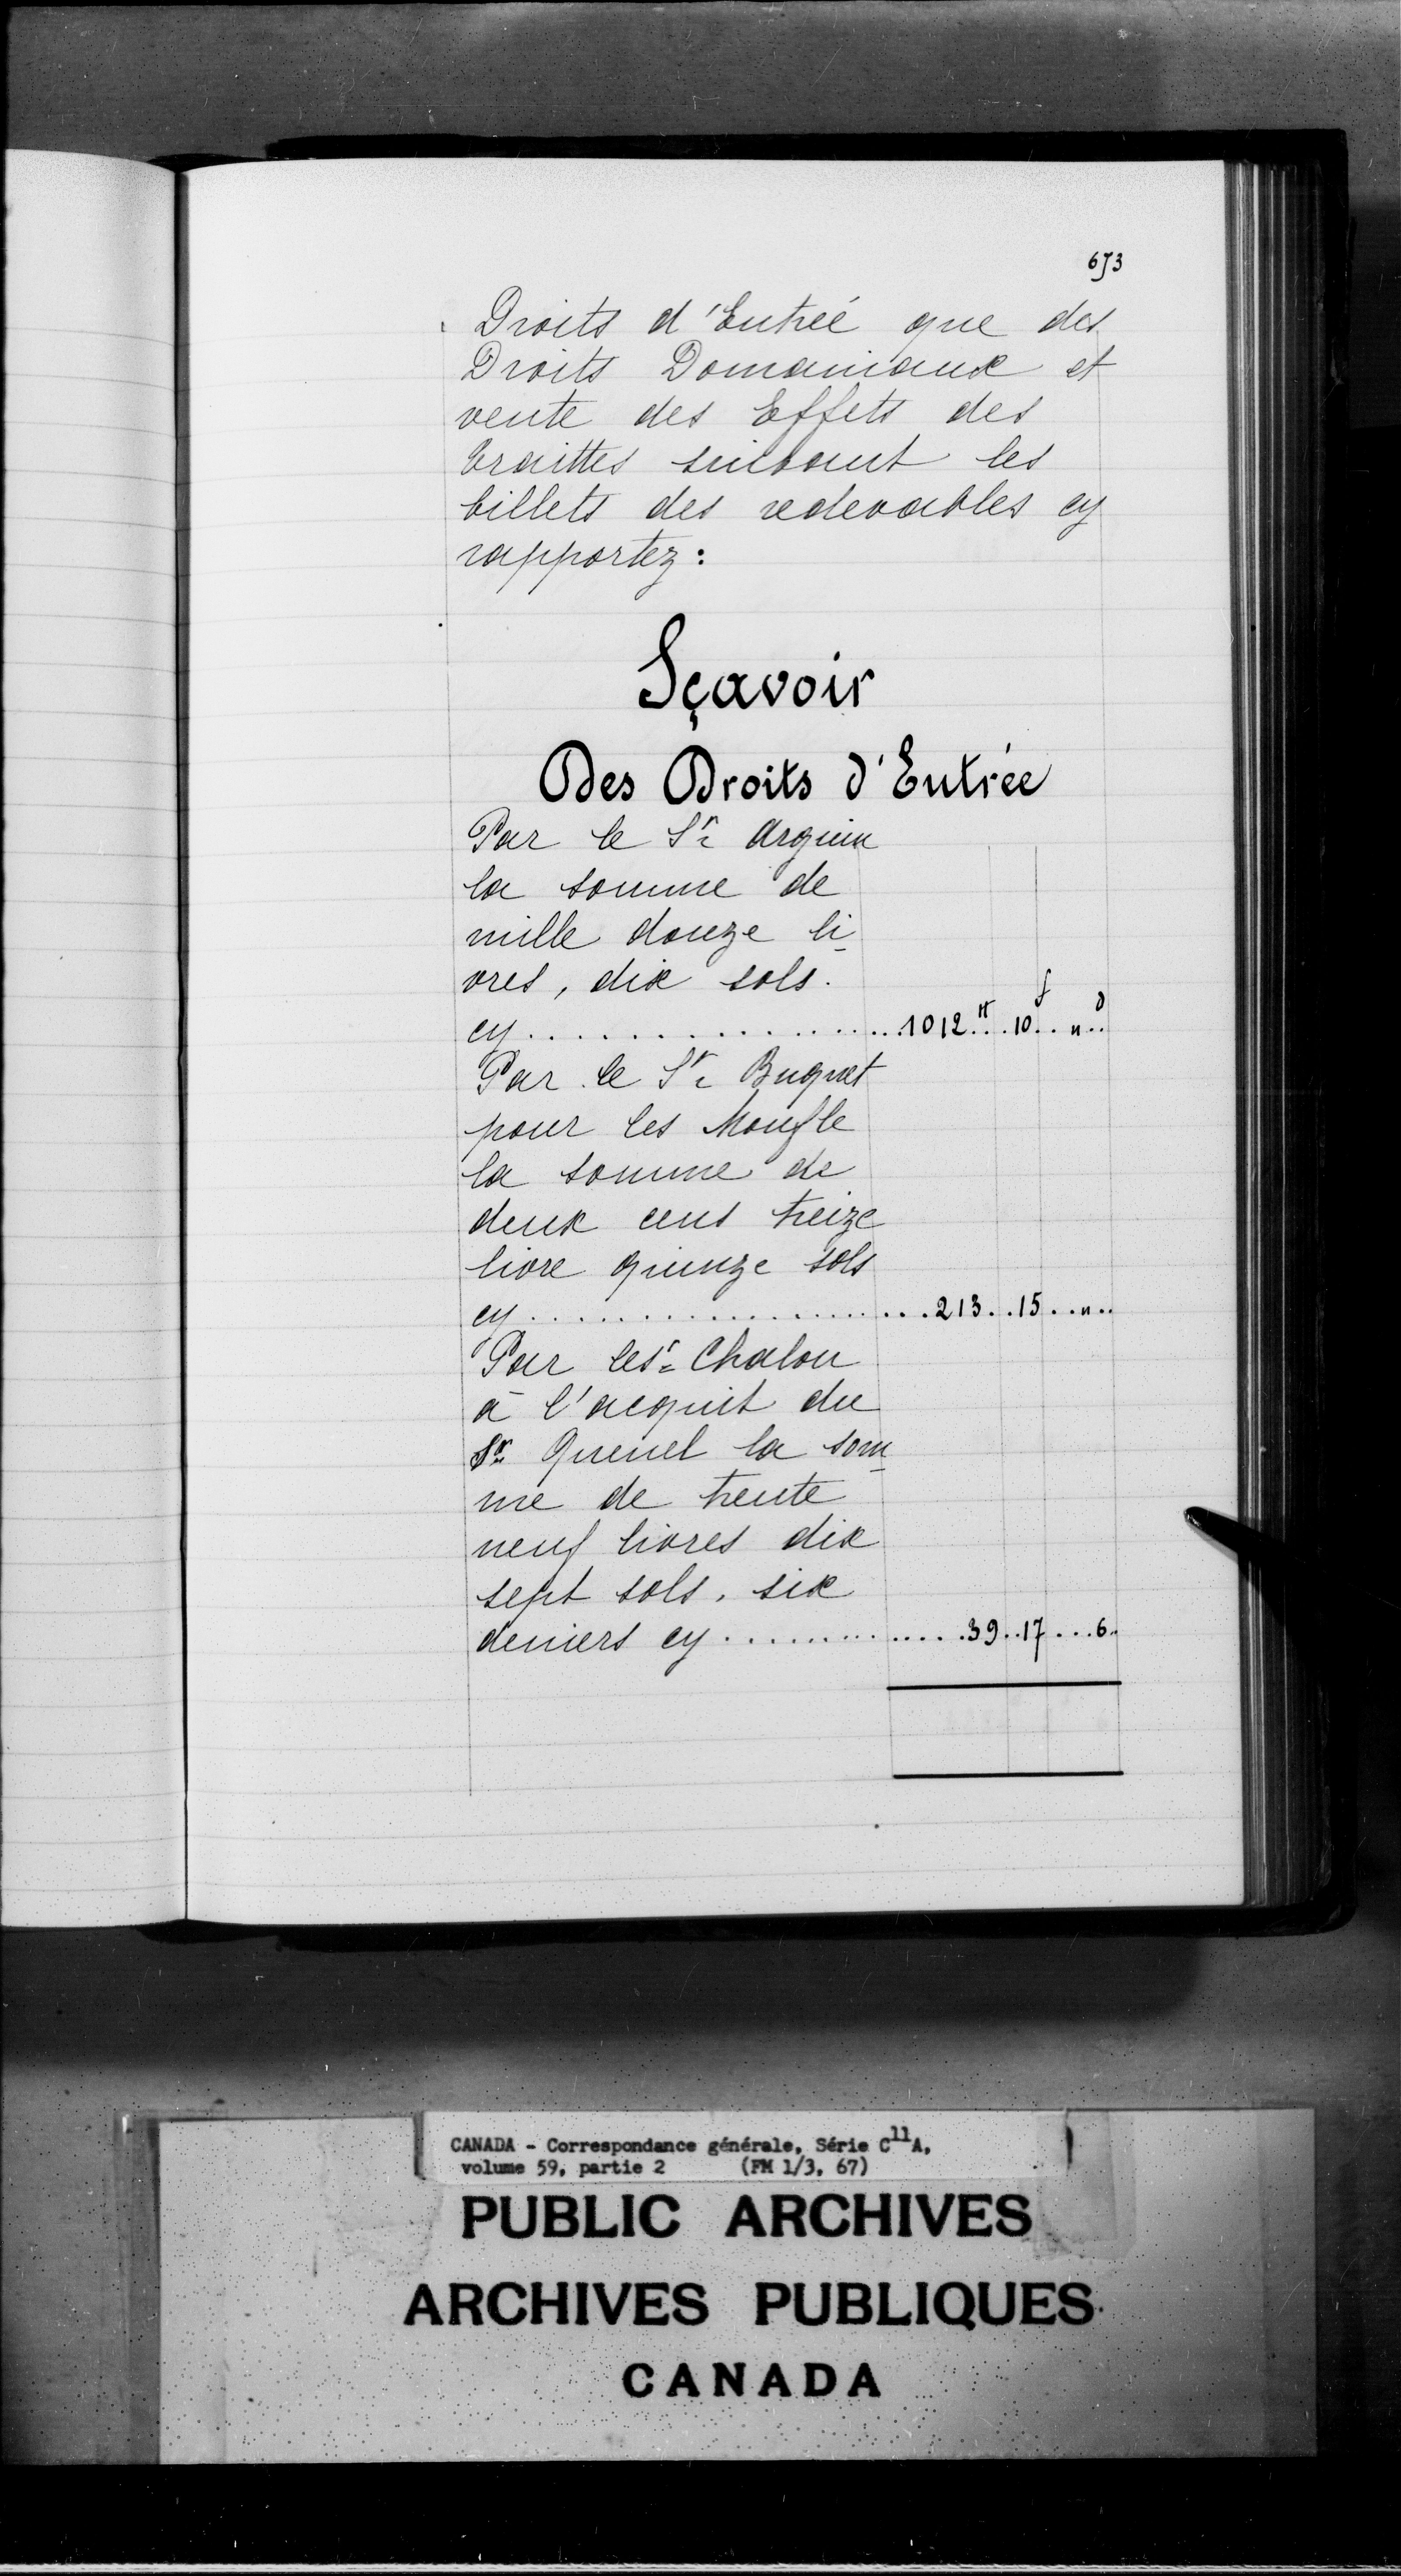 653
Droits d'Entrée que des
Droits Domaniaux et
vente des Effets des
traittes suivant les
billets des redevables cy
rapportez :
Sçavoir
Des Droits d'Entrée
Par le Sr Arguin
la somme de
mille douze li-
vres, dix sols.
cy..................1012tt..10s..n..d
Par le Sr Buguet
pour les Moufle
la somme de
deux cens treize
livre quinze sols
cy.....................213..15..n..
Par le Sr Chalou
à l'acquit du
Sr Quenel la som-
me de trente
neuf livres dix
sept sols, six
deniers cy..............39..17...6..
CANADA - Correspondance générale, Série C11A,
volume 59, partie 2 (FM 1/3, 67)
PUBLIC ARCHIVES
ARCHIVES PUBLIQUES
CANADA